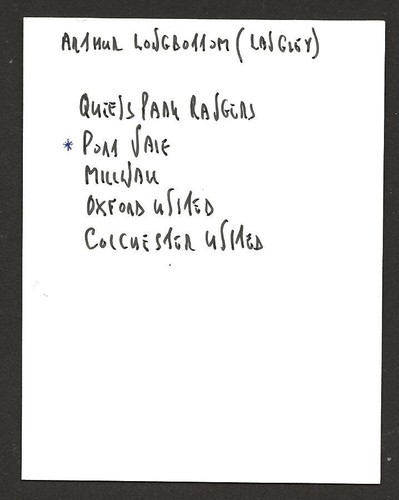 ARTHUR LONGBOTTOM (LANGLEY)
QUEENS PARK RANGERS
* PORT VALE
MILLWALL
OXFORD UNITED
COLCHESTER UNITED